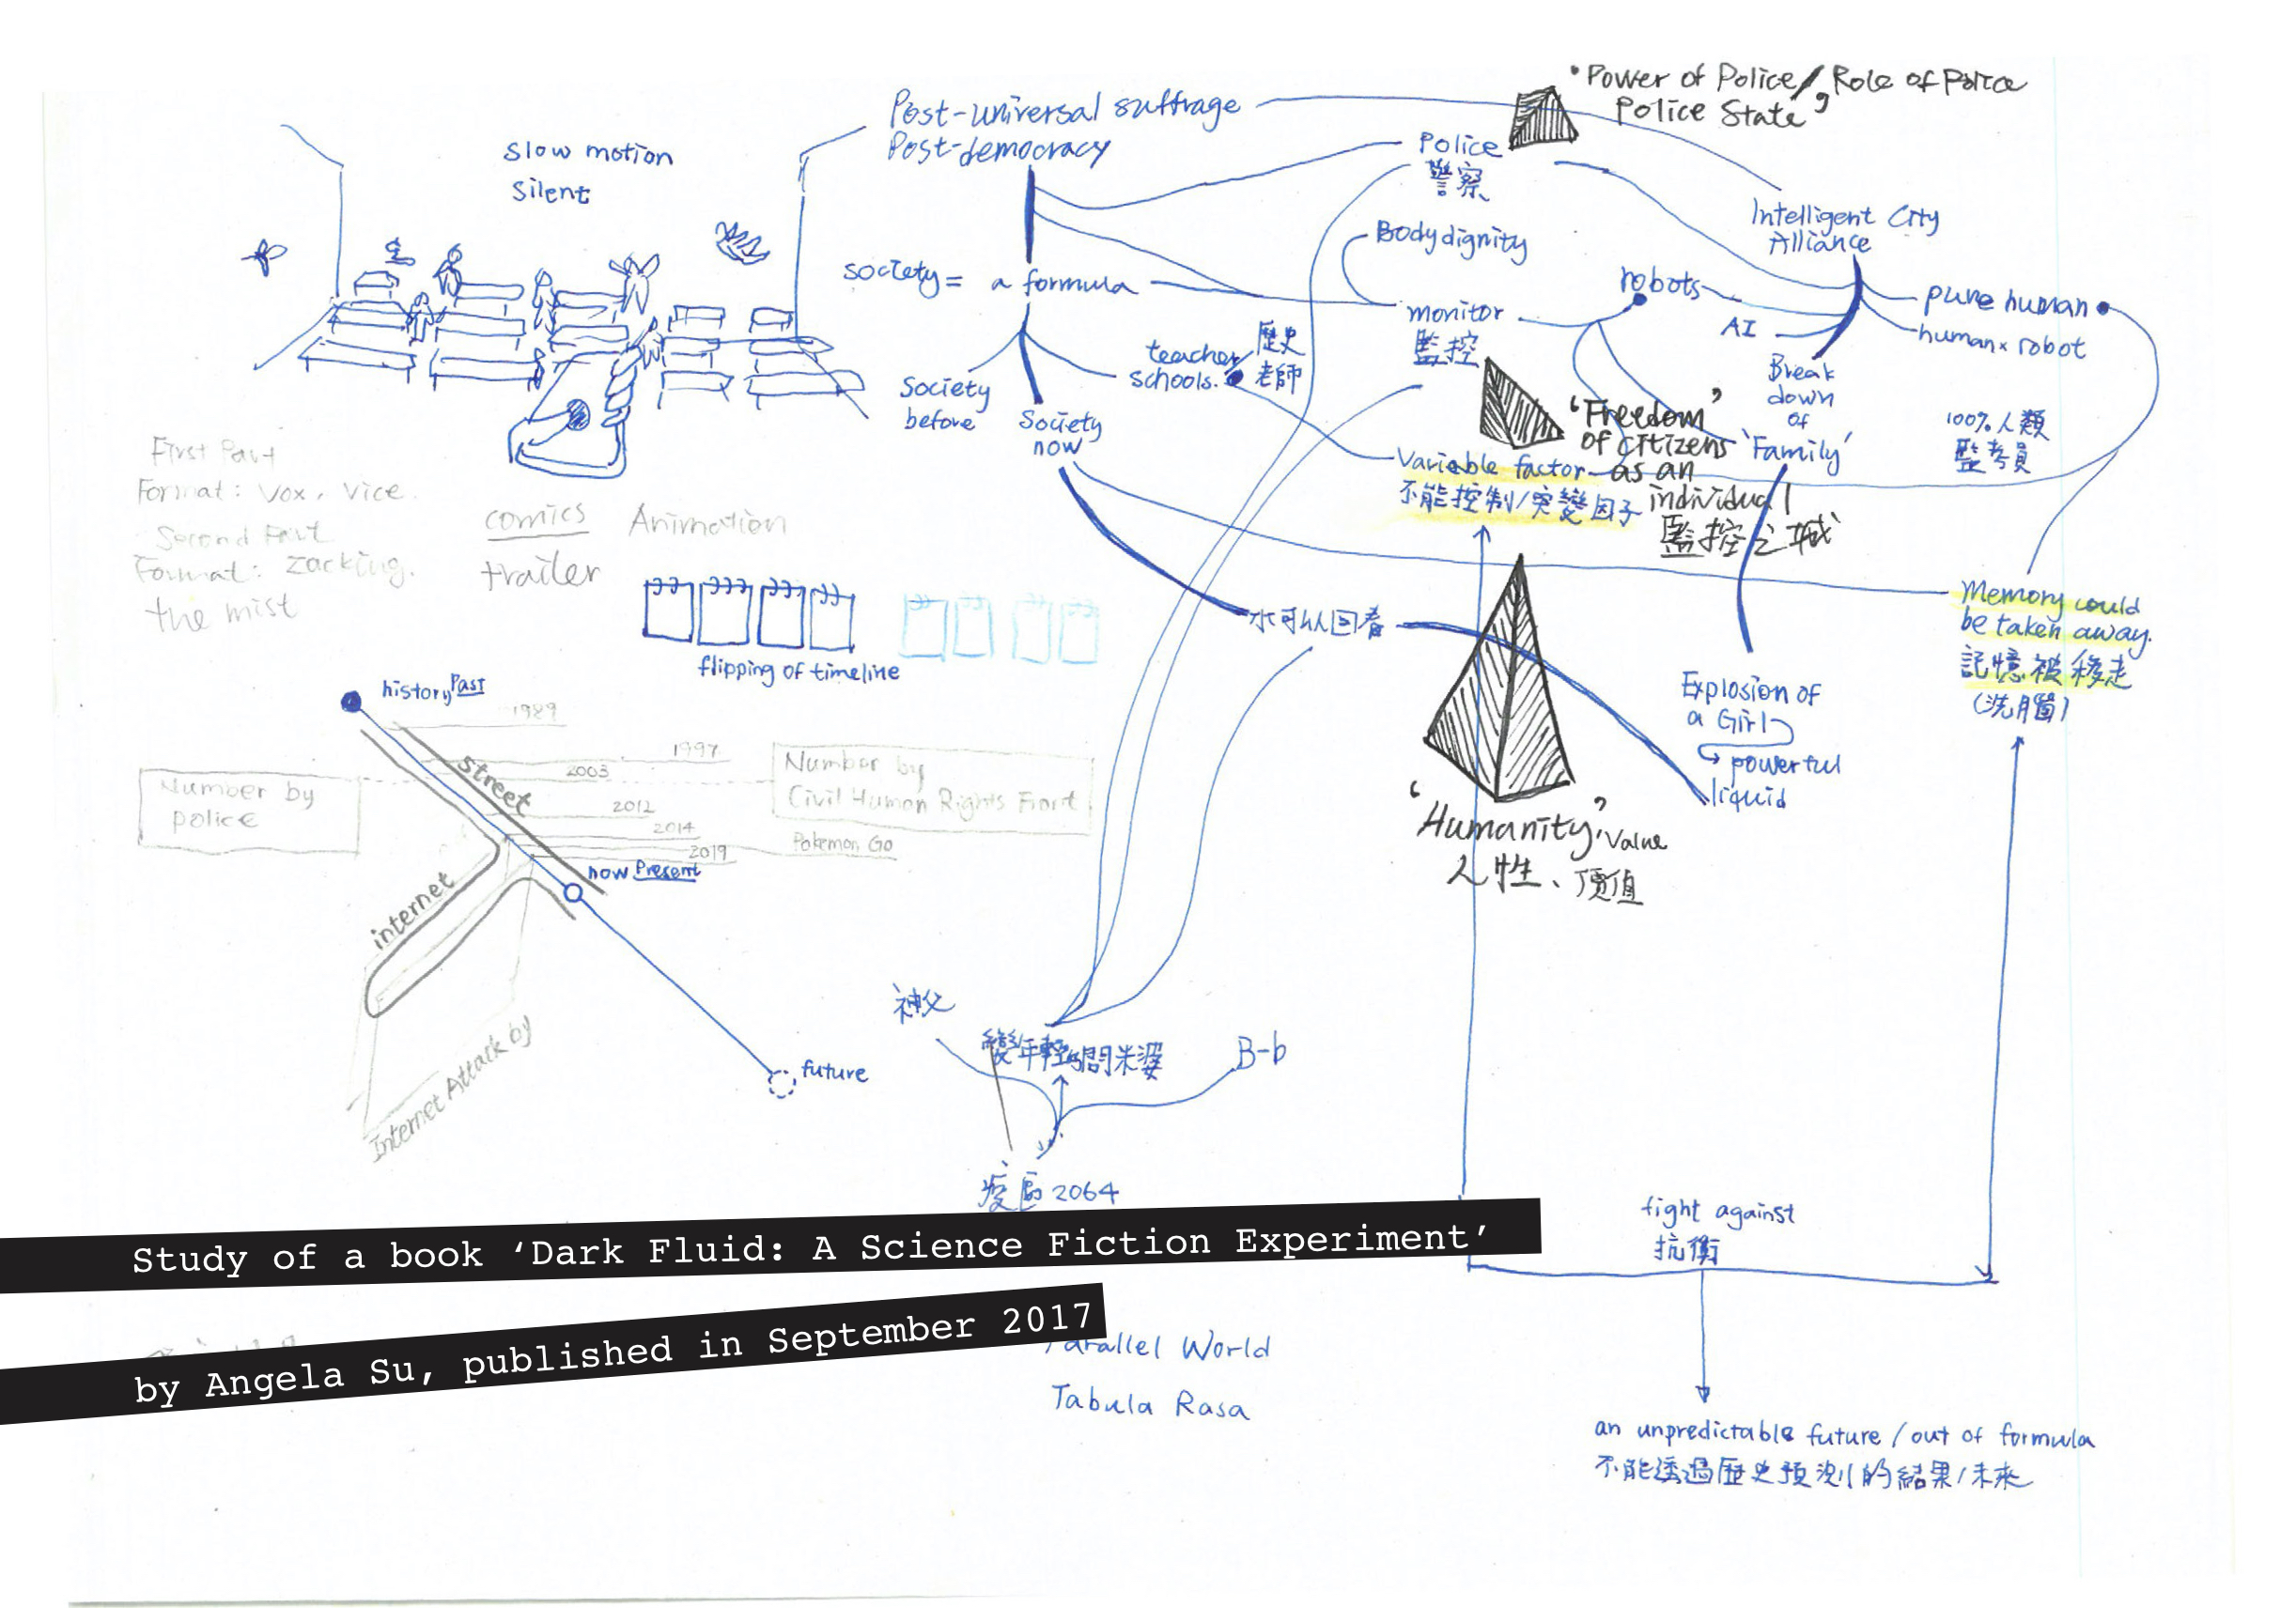 'Power of Police / Role of Police
Police State'
Post-universal suffrage
Post-democracy
Slow motion
Silent
Police
警察
Body dignity
Intelligent City
Alliance
society = a formula
robots
pure human
AI
human x robot
monitor
監控
teacher/
schools.
歷史
老師
Society
before
Society
now
Break
down
of
'Family'
100% 人類
監考員
'Freedom'
of citizens
as an
individual
監控之城
Variable factor
不能控制/突變因子
First Part
Format: Vox, Vice.
Second Part
Format: zacking.
the mist
comics
trailer
Animation
flipping of timeline
水可以回春
Memory could
be taken away.
記憶被移走
(洗腦)
Explosion of
a Girl
powerful
liquid
history Past
1989
1997
2003
2012
2014
2019
street
Number by
police
Number by
Civil Human Rights Front
Pokemon Go
now Present
internet
Internet Attack by
future
'Humanity', Value
人性、價值
神父
變年輕的問米婆
B-b
疫區 2064
Study of a book ‘Dark Fluid: A Science Fiction Experiment’
by Angela Su, published in September 2017
fight against
抗衡
Parallel World
Tabula Rasa
an unpredictable future / out of formula
不能透過歷史預測的結果/未來